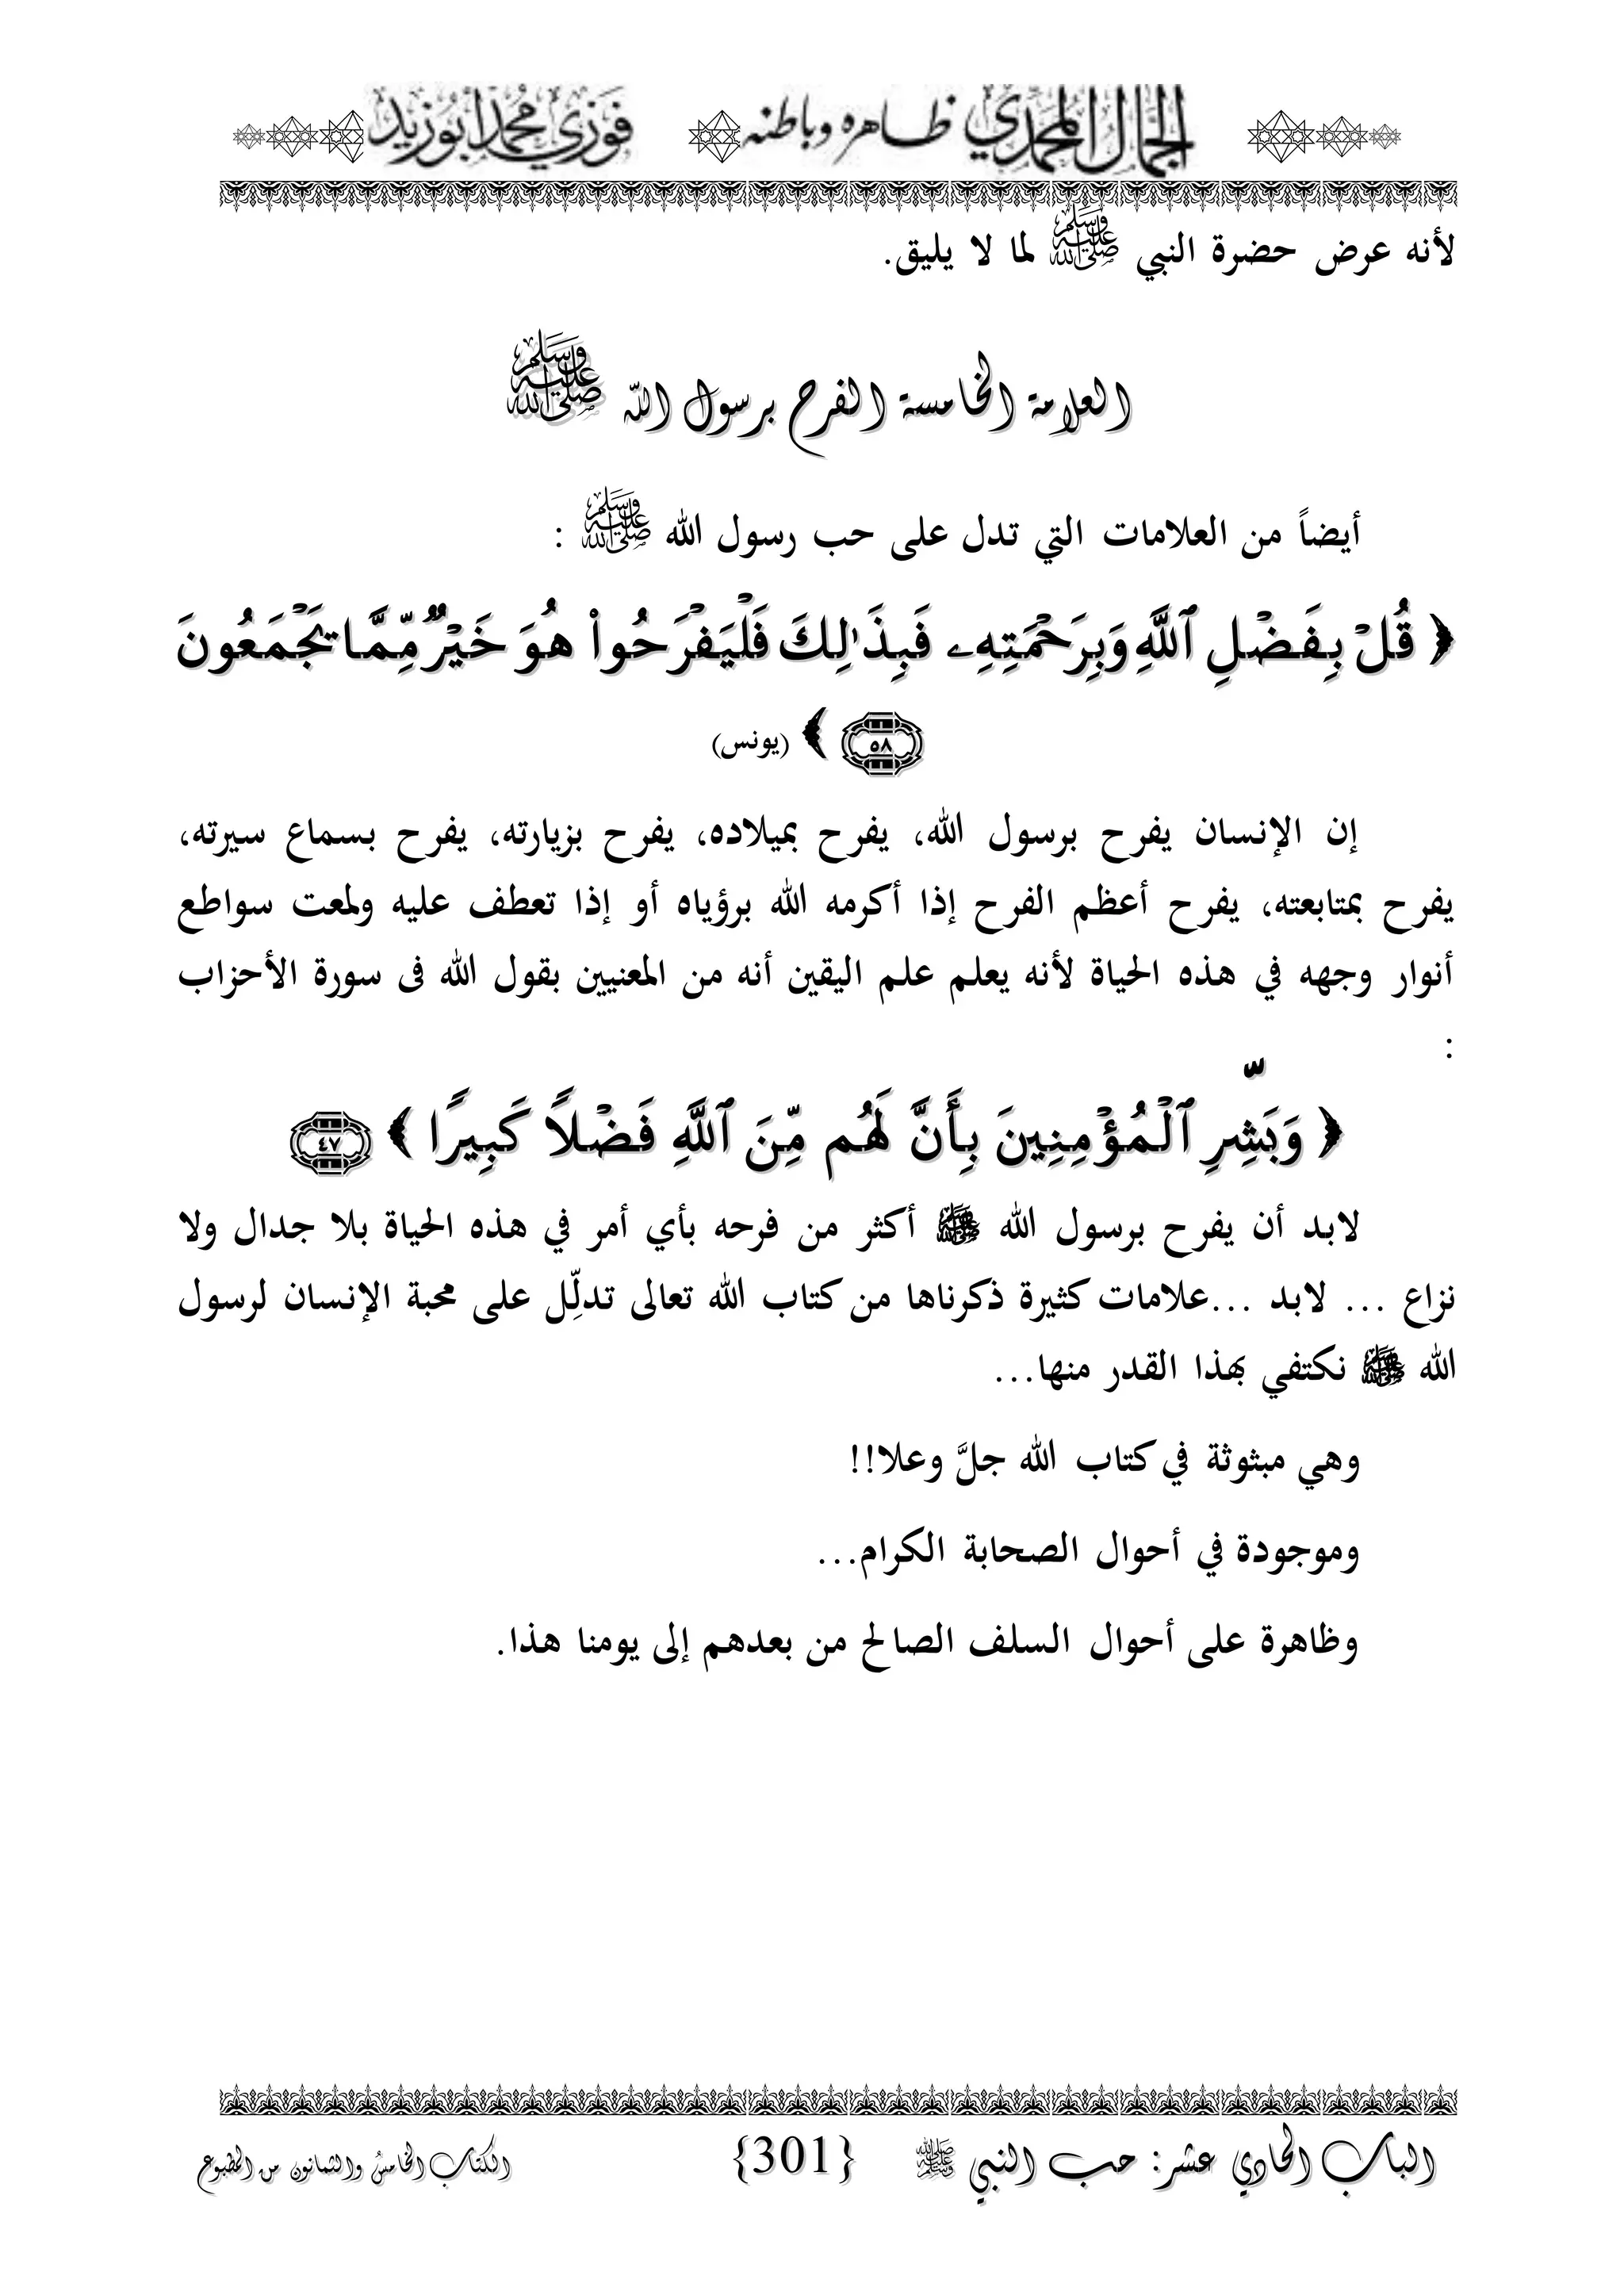 الجمال المحمدي ظاهره وباطنه فوزي محمد أبوزيد
لأنه عرض حضرة النبي ﷺ لما لا يليق.
العلامة الخامسة الفرح برسول الله ﷺ
أيضاً من العلامات التي تدل على حب رسول الله ﷺ :
﴿ قُلْ بِفَضْلِ ٱللَّهِ وَبِرَحْمَتِهِۦ فَبِذَٰلِكَ فَلْيَفْرَحُوا۟ هُوَ خَيْرٌ مِّمَّا يَجْمَعُونَ
٥٨ ﴾ (يونس)
إن الإنسان يفرح برسول الله، يفرح بميلاده، يفرح بزيارته، يفرح بسماع سيرته،
يفرح بمتابعته، يفرح أعظم الفرح إذا أكرمه الله برؤياه أو إذا تعطف عليه ولمعت سواطع
أنوار وجهه في هذه الحياة لأنه يعلم علم اليقين أنه من المعنيين بقول الله فى سورة الأحزاب
:
﴿ وَبَشِّرِ ٱلْمُؤْمِنِينَ بِأَنَّ لَهُم مِّنَ ٱللَّهِ فَضْلاً كَبِيرًا ﴾ ٤٧
لابد أن يفرح برسول الله ﷺ أكثر من فرحه بأي أمر في هذه الحياة بلا جدال ولا
نزاع ... لابد ...علامات كثيرة ذكرناها من كتاب الله تعالى تدلِّل على محبة الإنسان لرسول
الله ﷺ نكتفي بهذا القدر منها...
وهي مبثوثة في كتاب الله جلَّ وعلا!!
وموجودة في أحوال الصحابة الكرام...
وظاهرة على أحوال السلف الصالح من بعدهم إلى يومنا هذا.
الباب الحادي عشر: حب النبي ﷺ {301} الكتاب الخامس والثمانون من المطبوع